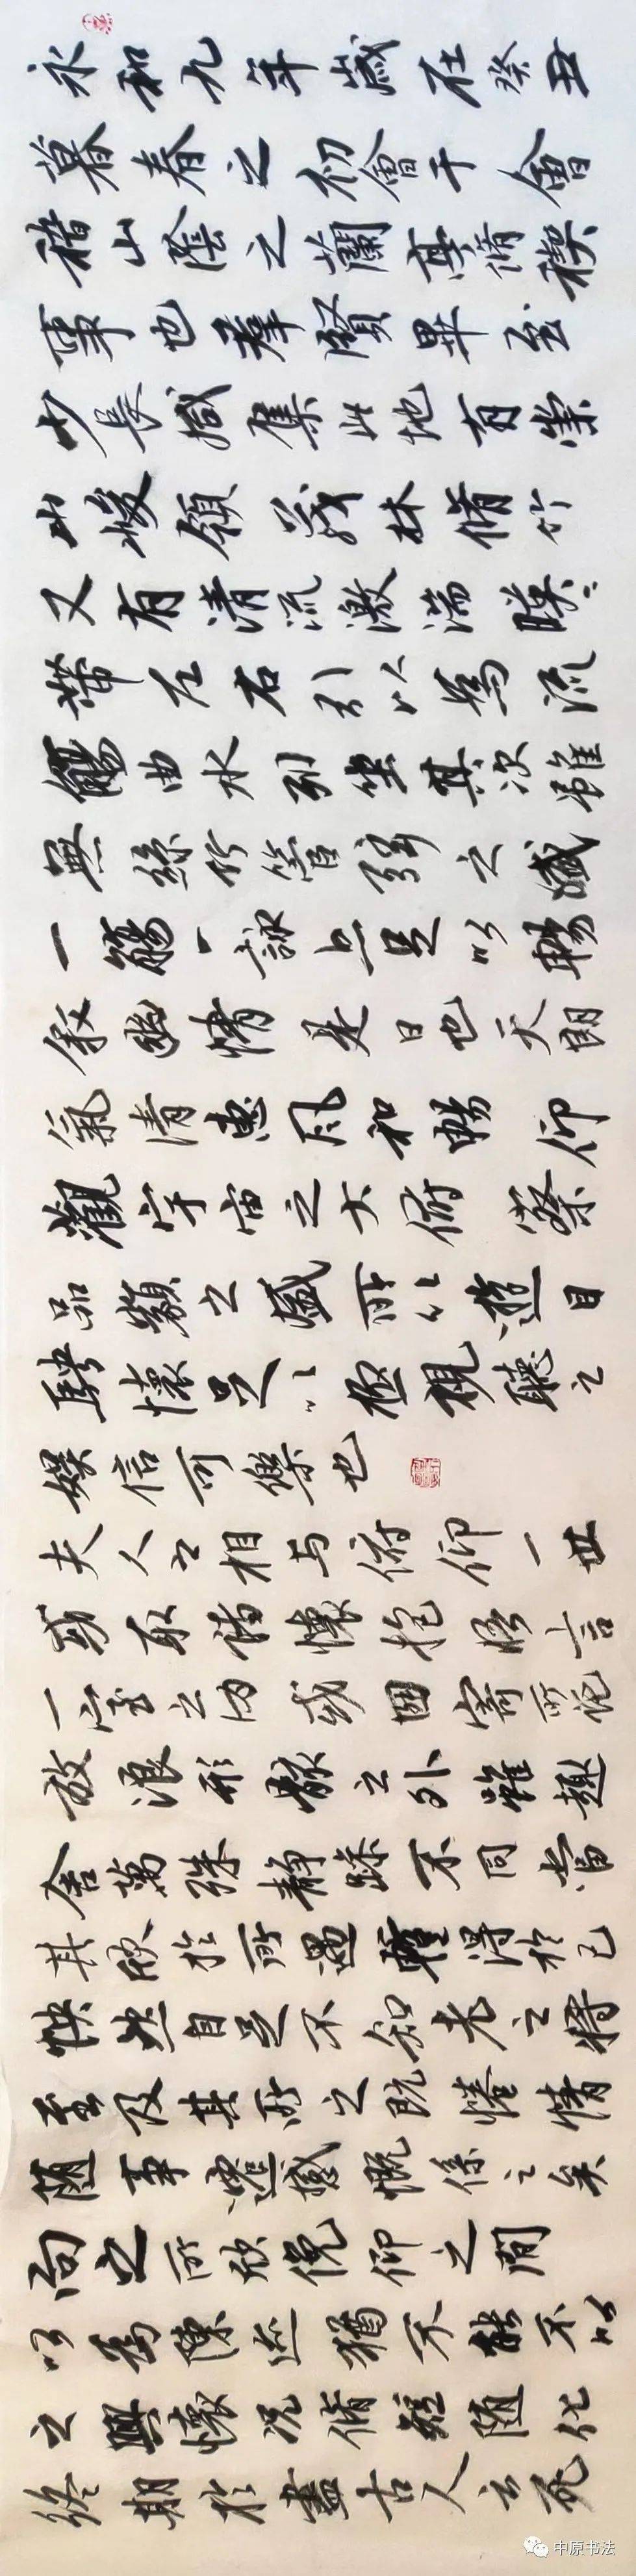 永和九年歲在癸丑
暮春之初會于會
稽山陰之蘭亭脩禊
事也群賢畢至
少長咸集此地有崇
山峻領茂林脩竹
又有清流激湍暎
帶左右引以為流
觴曲水列坐其次雖
無絲竹管弦之盛
一觴一詠亦足以暢
叙幽情是日也天朗
氣清惠風和暢仰
觀宇宙之大俯察
品類之盛所以遊目
騁懷足以極視聽之
娛信可樂也
夫人之相与俯仰一世
或取諸懷抱悟言
一室之內或因寄所託
放浪形骸之外雖趣
舍萬殊静躁不同當
其欣於所遇暫得於己
怏然自足不知老之將
至及其所之既惓情
随事遷感慨係之矣
向之所欣俛仰之間
以為陳迹猶不能不以
之興懷况脩短随化
終期於盡古人云死
中原书法